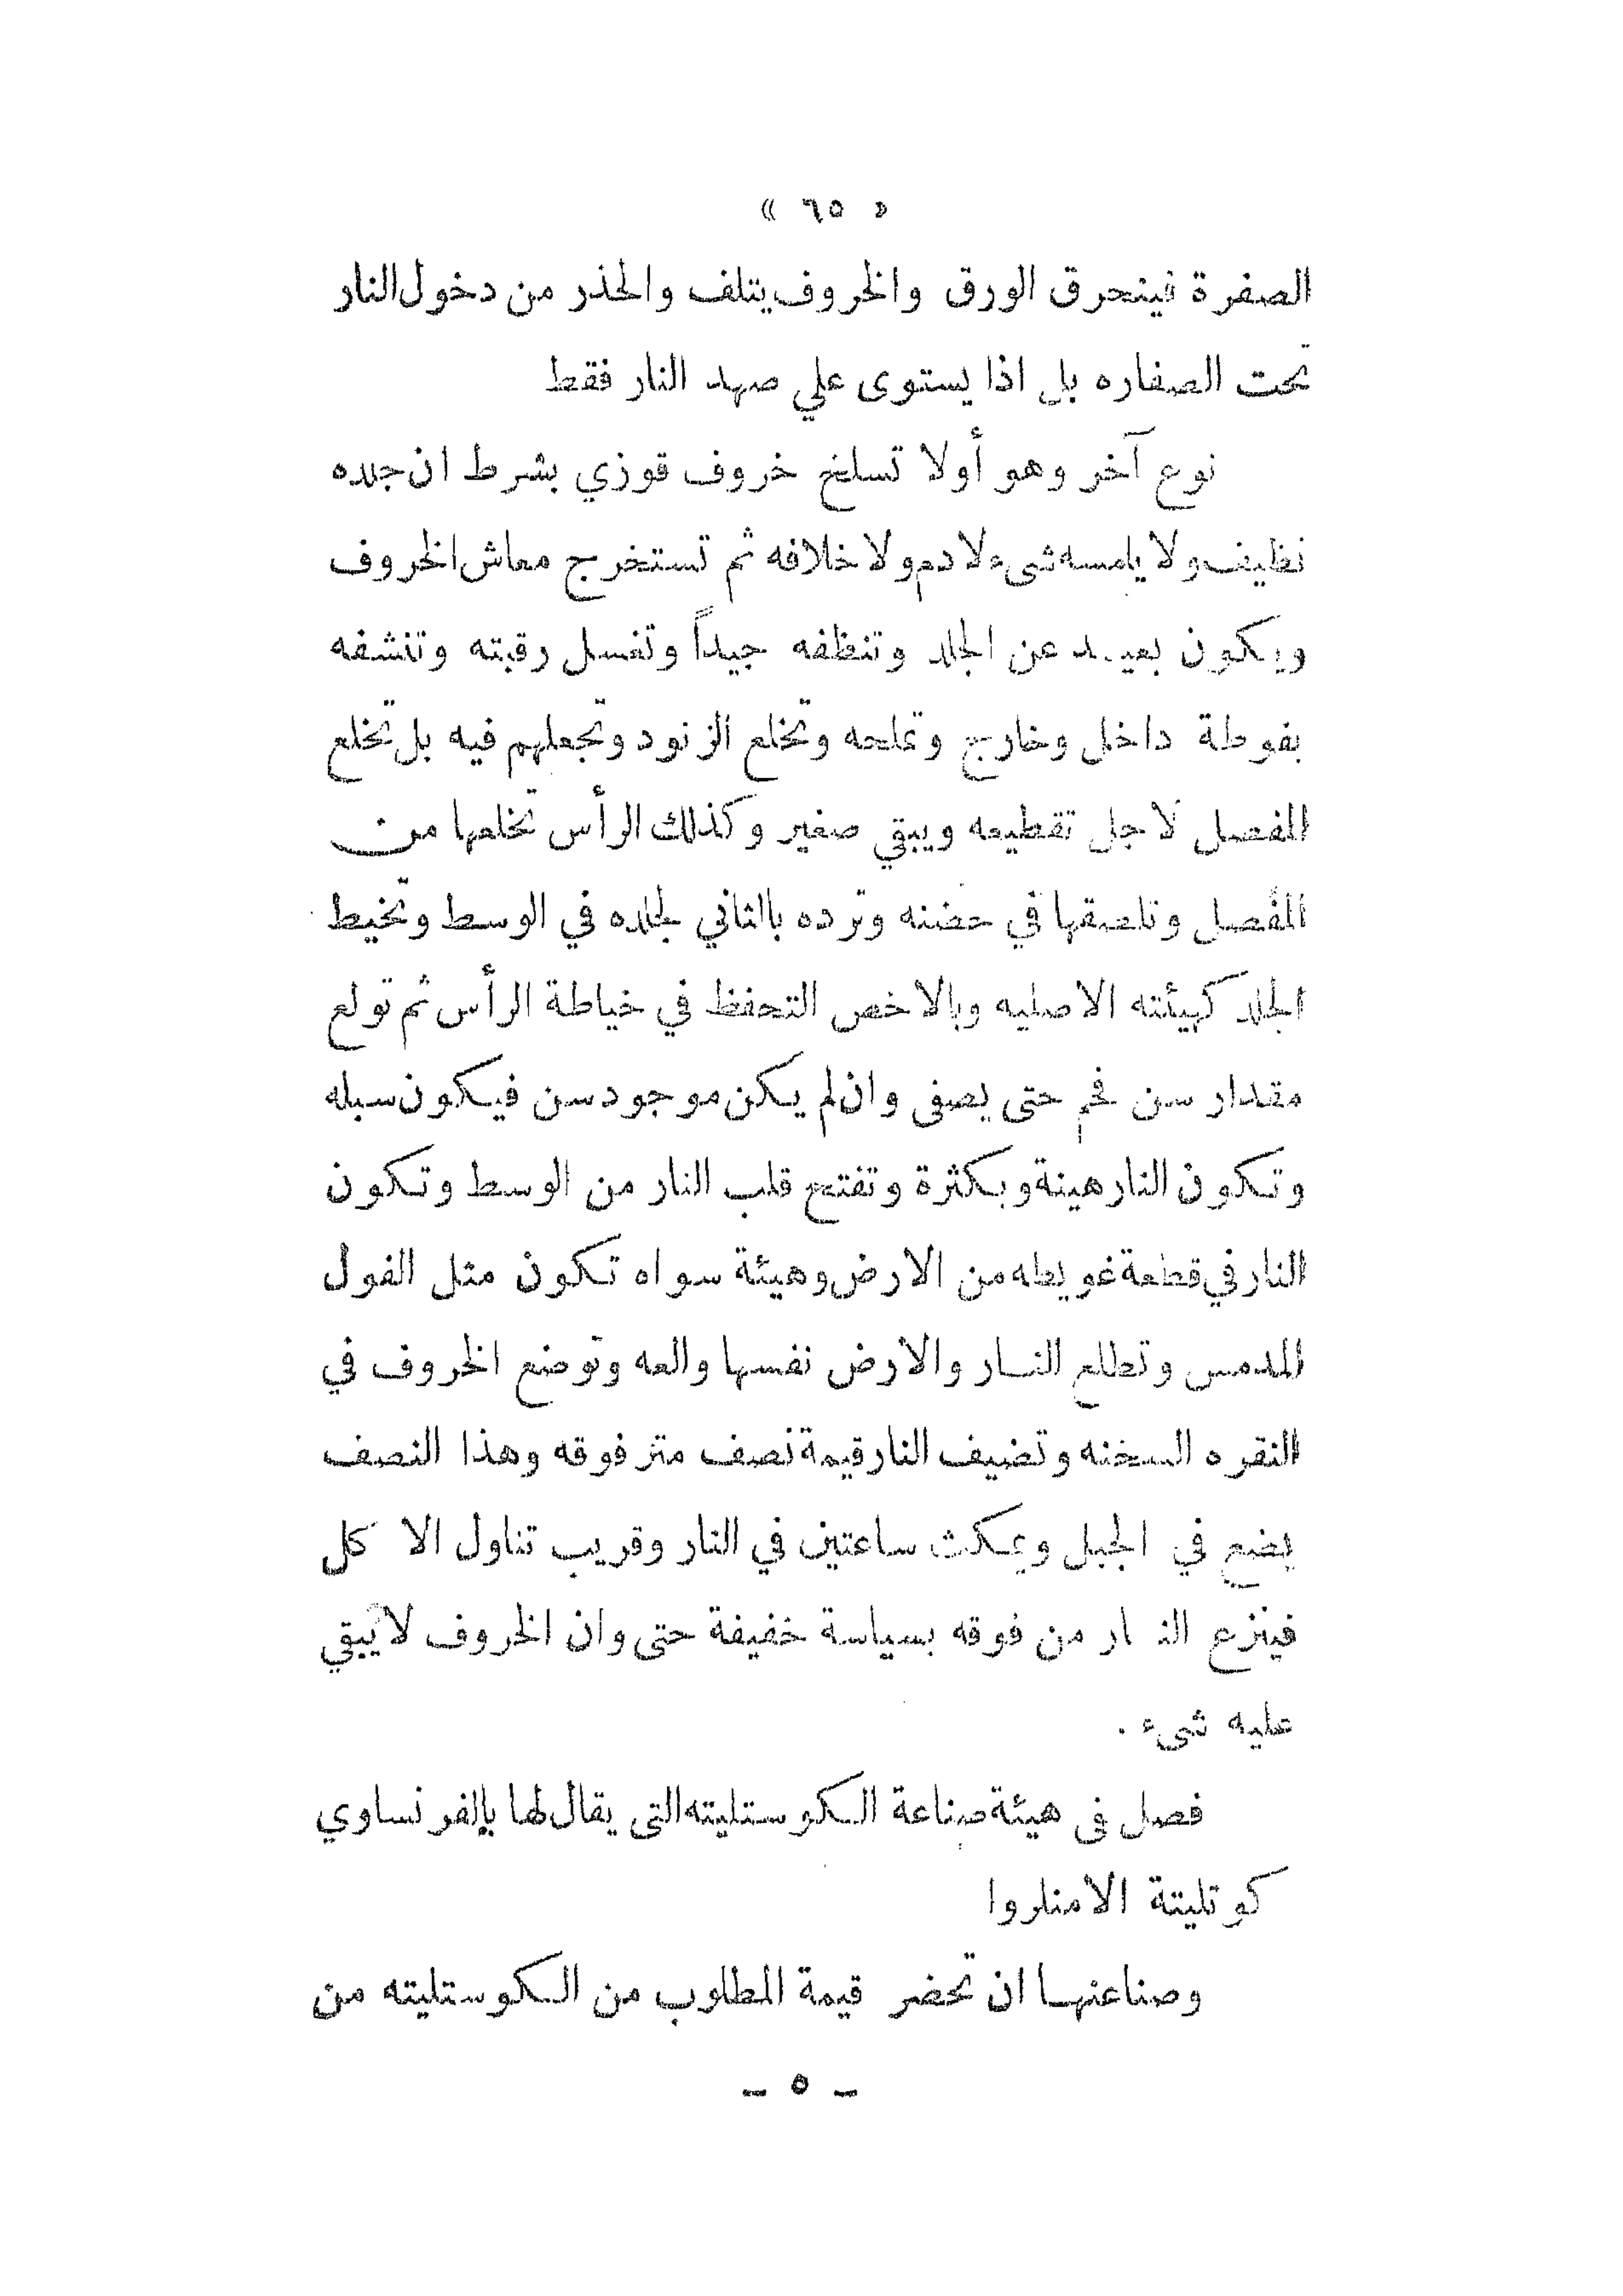 « ٦٥ »
الصفرة فينحرق الورق والخروف يتلف والحذر من دخول النار
تحت الصفاره بل اذا يستوى علي صهد النار فقط
نوع آخر وهو أولا تسلخ خروف قوزي بشرط ان جلده
نظيف ولا يامسه شىء لا دم ولا خلافه ثم تستخرج معاش الخروف
ويكون بعيد عن الجلد وتنظفه جيداً وتغسل رقبته وتنشفه
بفوطة داخل وخارج وتملحه وتخلع الزنود وتجعلهم فيه بل تخلع
المفصل لاجل تقطيعه ويبقي صغير وكذلك الرأس تخلعها من
المفصل وتلصقها في حضنه وترده باالثاني لجلده في الوسط وتخيط
الجلد كهيئته الاصليه وبالاخص التحفظ في خياطة الرأس ثم تولع
مقدار سن فحم حتى يصفى وان لم يكن موجود سن فيكون سبله
وتكون النار هينة وبكثرة وتفتح قلب النار من الوسط وتكون
النار في قطعة غويطه من الارض وهيئة سواه تكون مثل الفول
المدمس وتطلع النار والارض نفسها والعه وتوضع الخروف في
النقره السخنه وتضيف النار قيمة نصف متر فوقه وهذا النصف
يضع في الجبل ويمكث ساعتين في النار وقريب تناول الاكل
فينزع النار من فوقه بسياسة خفيفة حتى وان الخروف لا يبقي
عليه شىء .
فصل فى هيئة صناعة الكوستليته التى يقال لها بالفرنساوي
كوتليتة الامنلروا
وصناعتها ان تحضر قيمة المطلوب من الكوستليته من
- ٥ -